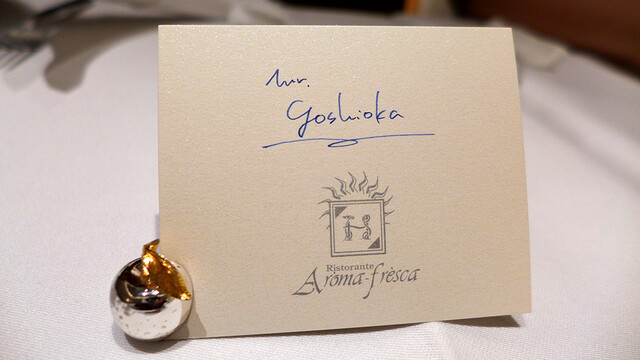 Mr.
Yoshioka
H
Ristorante
Aroma-frèsca